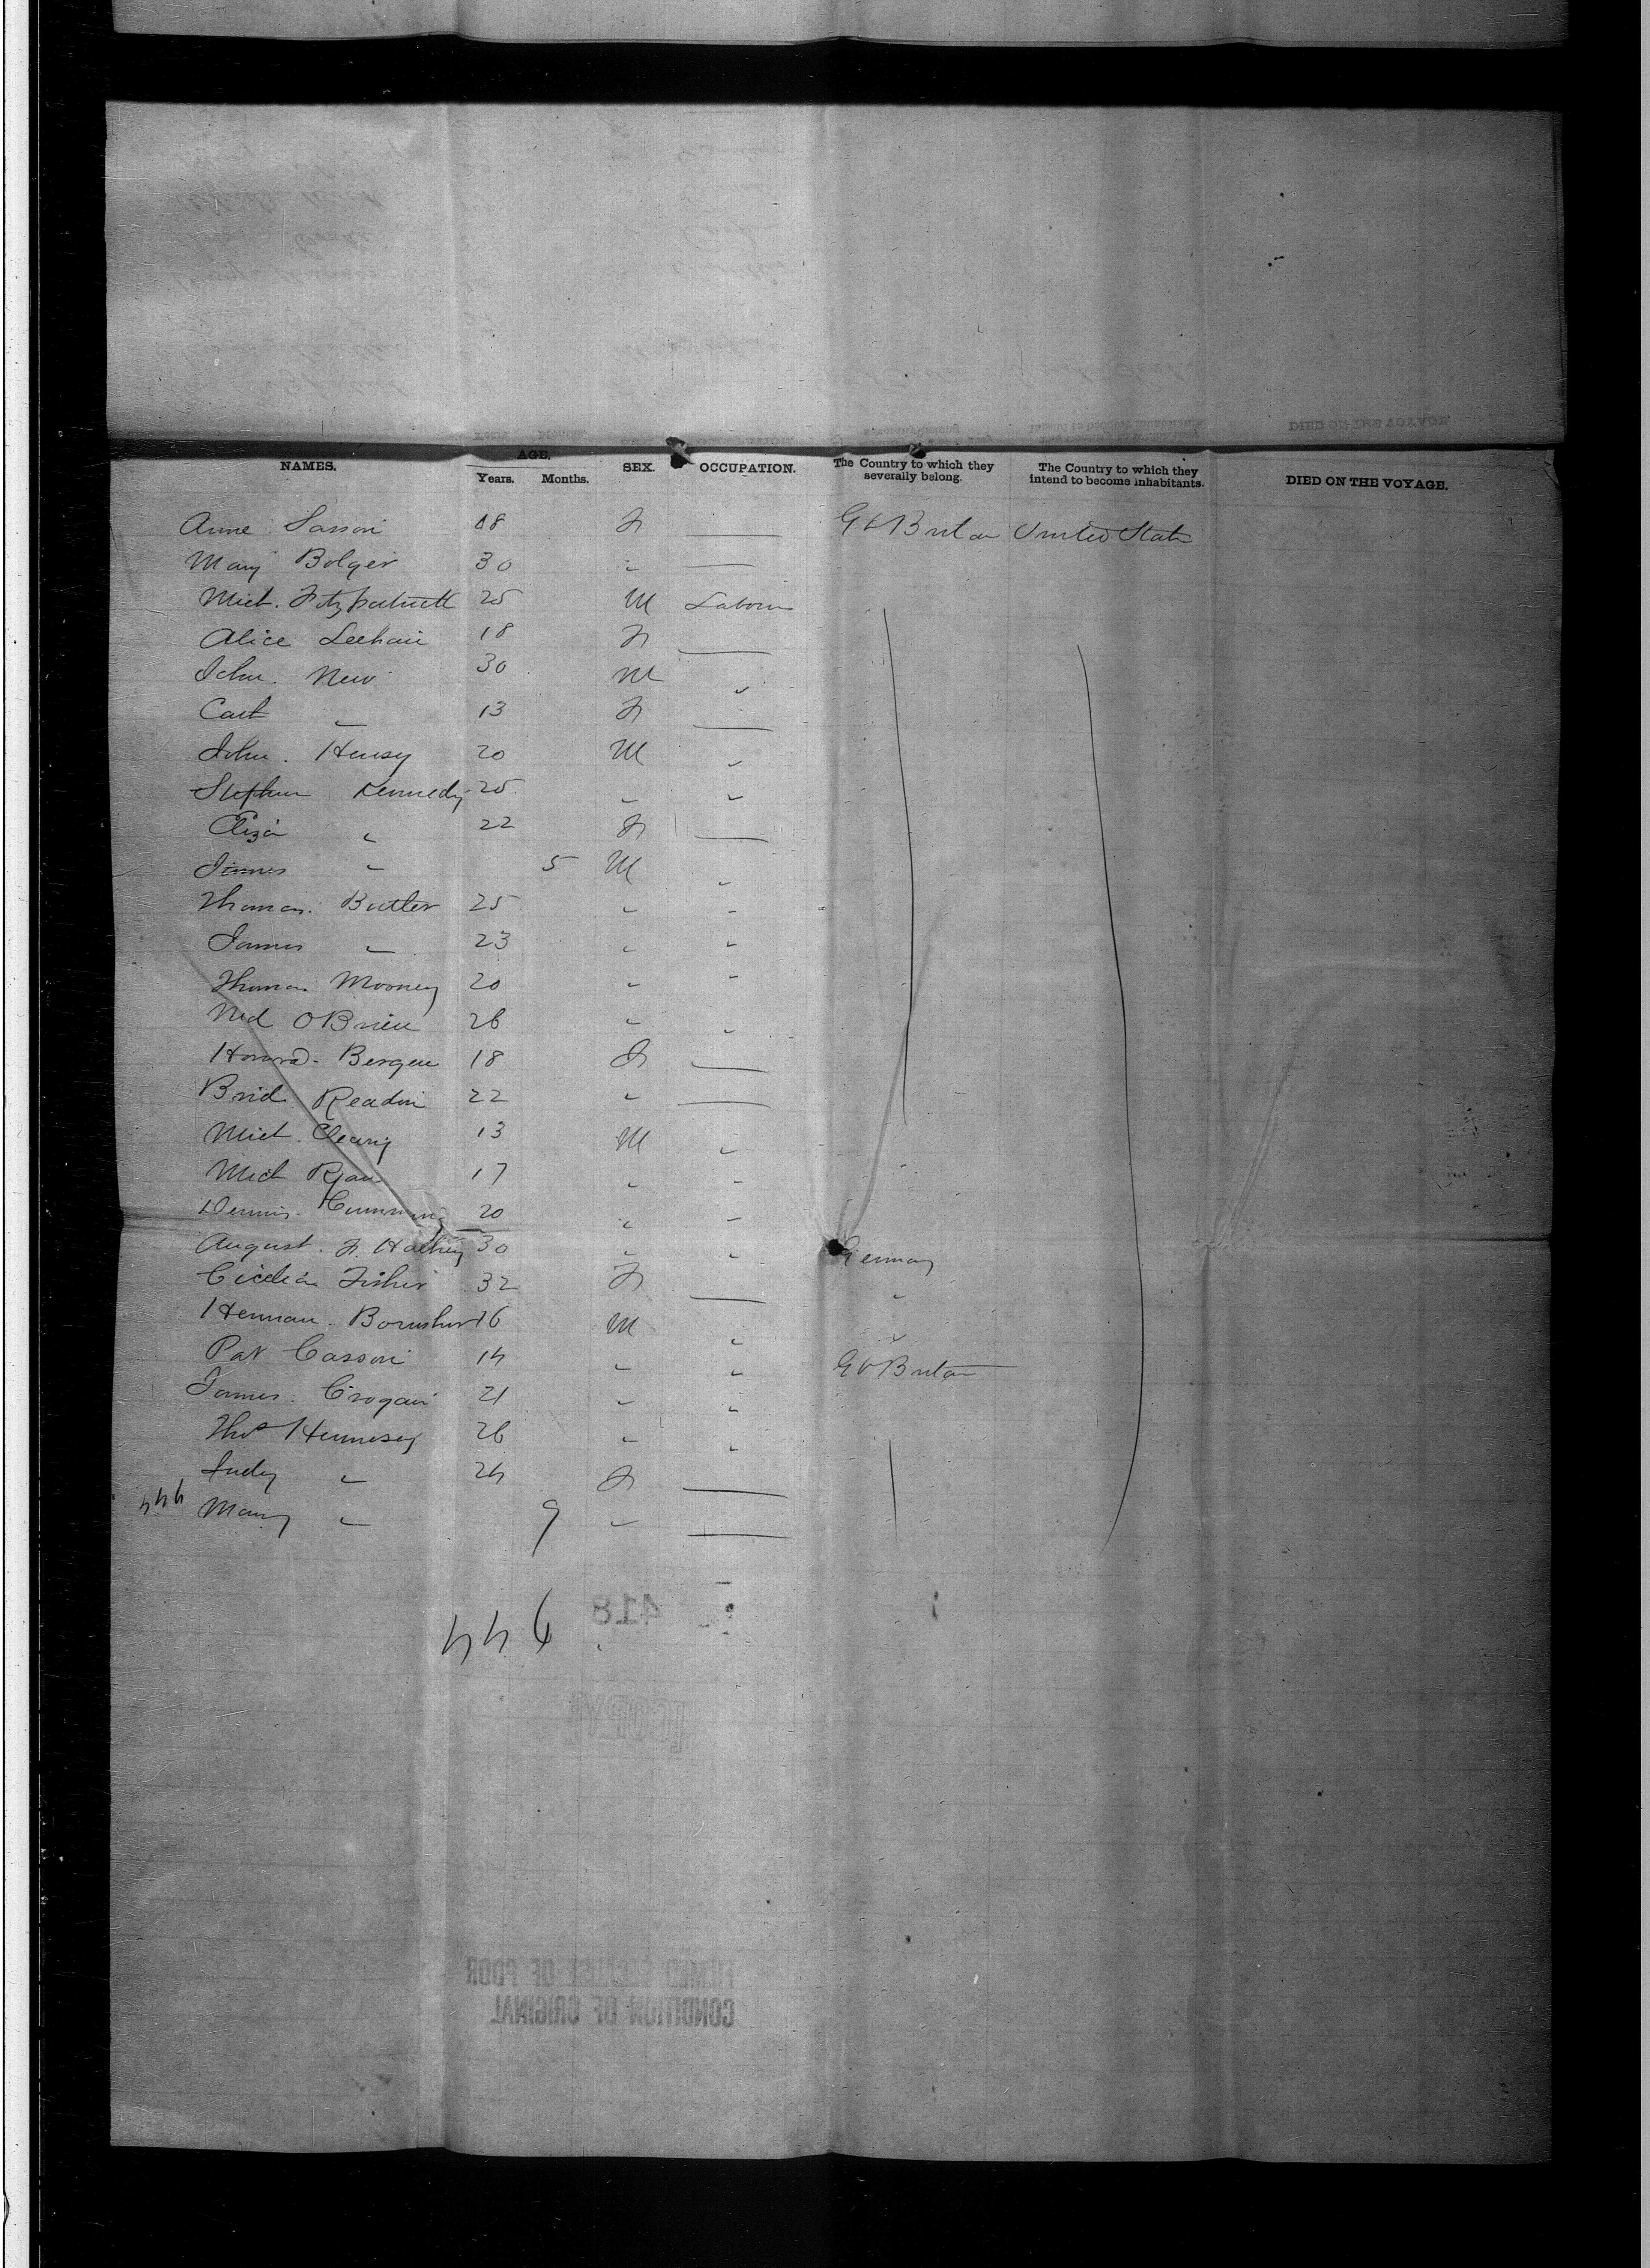 NAMES. AGE. Years. Months. SEX. OCCUPATION. The Country to which they severally belong. The Country to which they intend to become inhabitants. DIED ON THE VOYAGE.
Anne 18 F Gt Britan United State
Mary Bolger 30 "
Mich. Fitzpatrick 25 M Laborer
Alice 18 F
John. New 30 M "
Cath " 13 F
John. Henesy 20 M "
Stephen Kennedy 25 " "
Eliza " 22 F
James " 5 M "
Thomas. Butler 25 " "
James " 23 " "
Thomas Mooney 20 " "
Ned OBrien 26 " "
Honora. Bergen 18 F
Brid. Readin 22 "
Mich. Cleary 13 M "
Mich Ryan 17 " "
Dennis. Cumming 20 " "
August. F. 30 " " Germany
Cicelia Fisher 32 F "
Herman. 16 M " "
Pat Casson 14 " " Gt Britan
James. Grogan 21 " "
Thos Hennesey 26 " "
Judy " 24 F
446 Mary " 9 "
446
418
[COPY]
FILMED BECAUSE OF POOR
CONDITION OF ORIGINAL